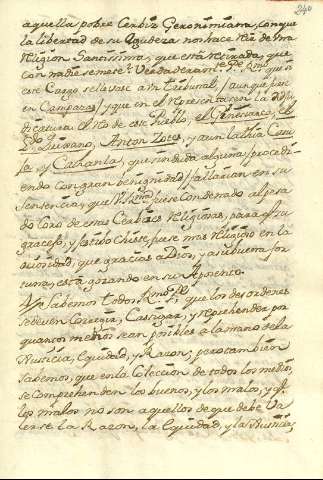 240
aquella pobre Cerbiz Geronimiana, con que
la libertad de su Agudeza non hace
Religion Santissima, que está tan irada, que
con nadie se mete: Verdaderam.te
este Cargo se llevase a mi Tribunal, (aunque fuese
en Campazas) y que en el Representasen la Ju
dicatura el tio de este Pueblo, el Ginovisco, el
P. Turrano, Anton Zotes, y aun la tia Caru
la y Catanla, que sin duda alguna procedi
endo con gran benignidad fallarian en su
Sentencia, que fuese Condenado al pesa
do loro de estas Cerbices Religiosas, para q. su
gracejo, y festibo Chiste, fuese mas Religioso en la
seriedad; que gracias a Dios, y a su buena for
tuna, está gozando en su Aposento.
Ya Sabemos todos, R.mo P. que los desordenes
se deven Corregir, Castigar, y reprehender por
quantos medios sean posibles a la mano de la
Justicia, Equidad, y Razon; pero tambien
Sabemos, que en la Coleccion de todos los medios,
se Comprehenden los buenos, y los malos, y q.
los malos no son aquellos de que debe Va
lerse la Razon, la Equidad, y la Justicia,